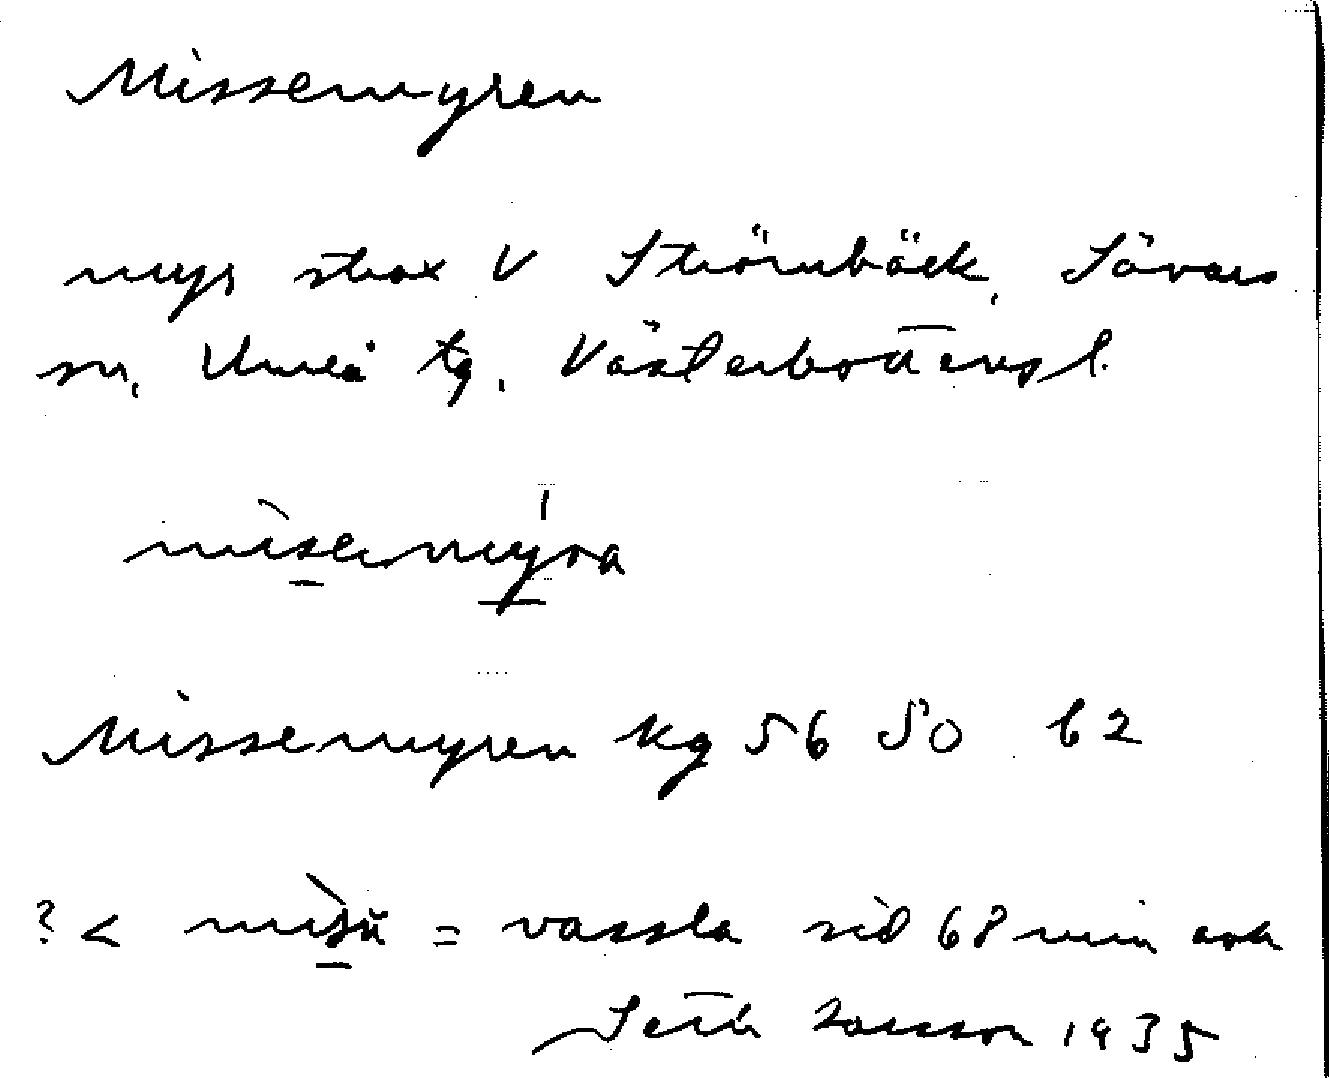 Missemyren
myr strax V Strömbäck, Sävars
sn, Umeå tg. Västerbottens l.
misemyra
Missemyren kg 56 50 b2
? < = vassla sid 68 min ark
Seth Larsson 1935